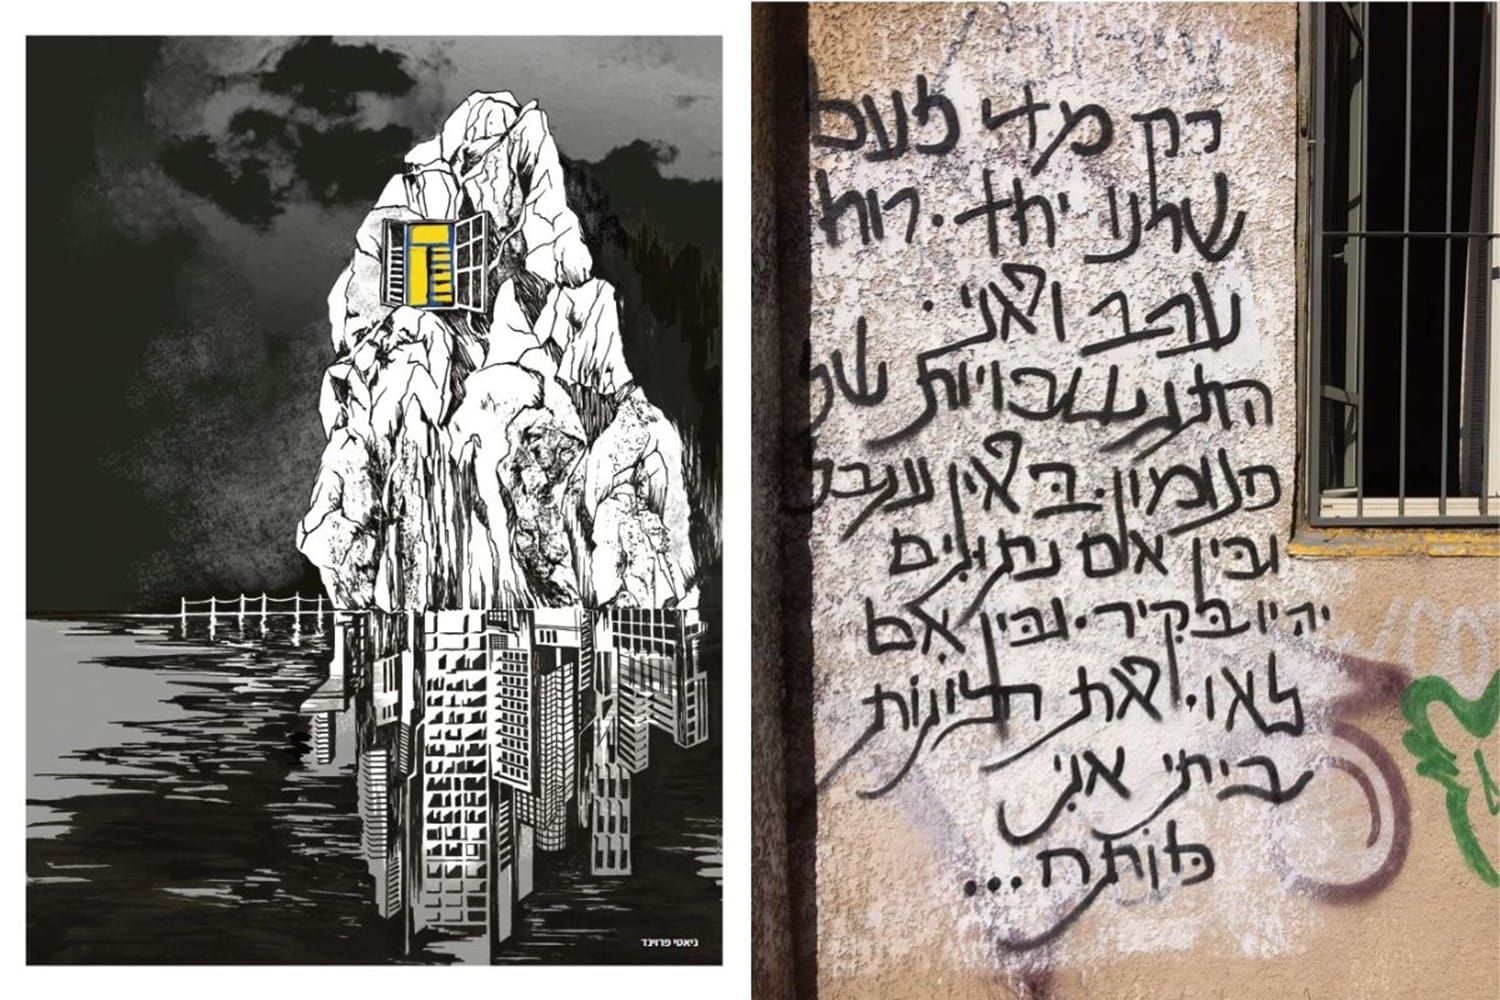 ניאטי פרוינד
רק מדי פעם
יחד. רוח
ערב ואני.
התנגשויות של
פעמון. באין ענבל
ובין אם נתונים
יהיו בקיר. ובין אם
לאו. את חלונות
ביתי אני
פותח...